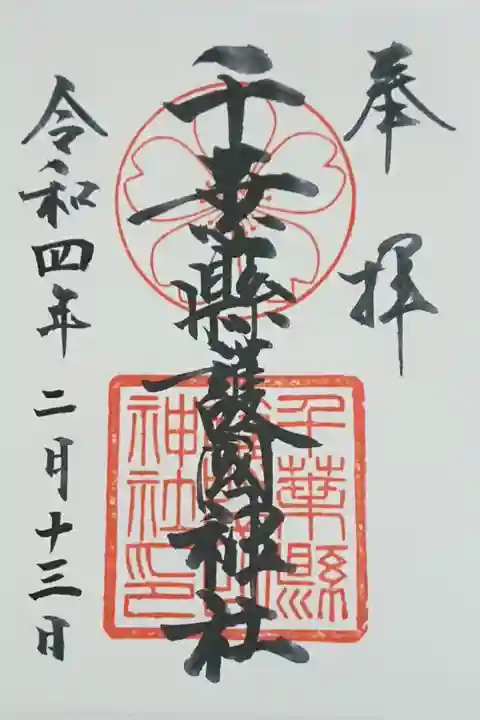 奉拝
千葉縣護國神社
千葉縣
神社印
令和四年二月十三日